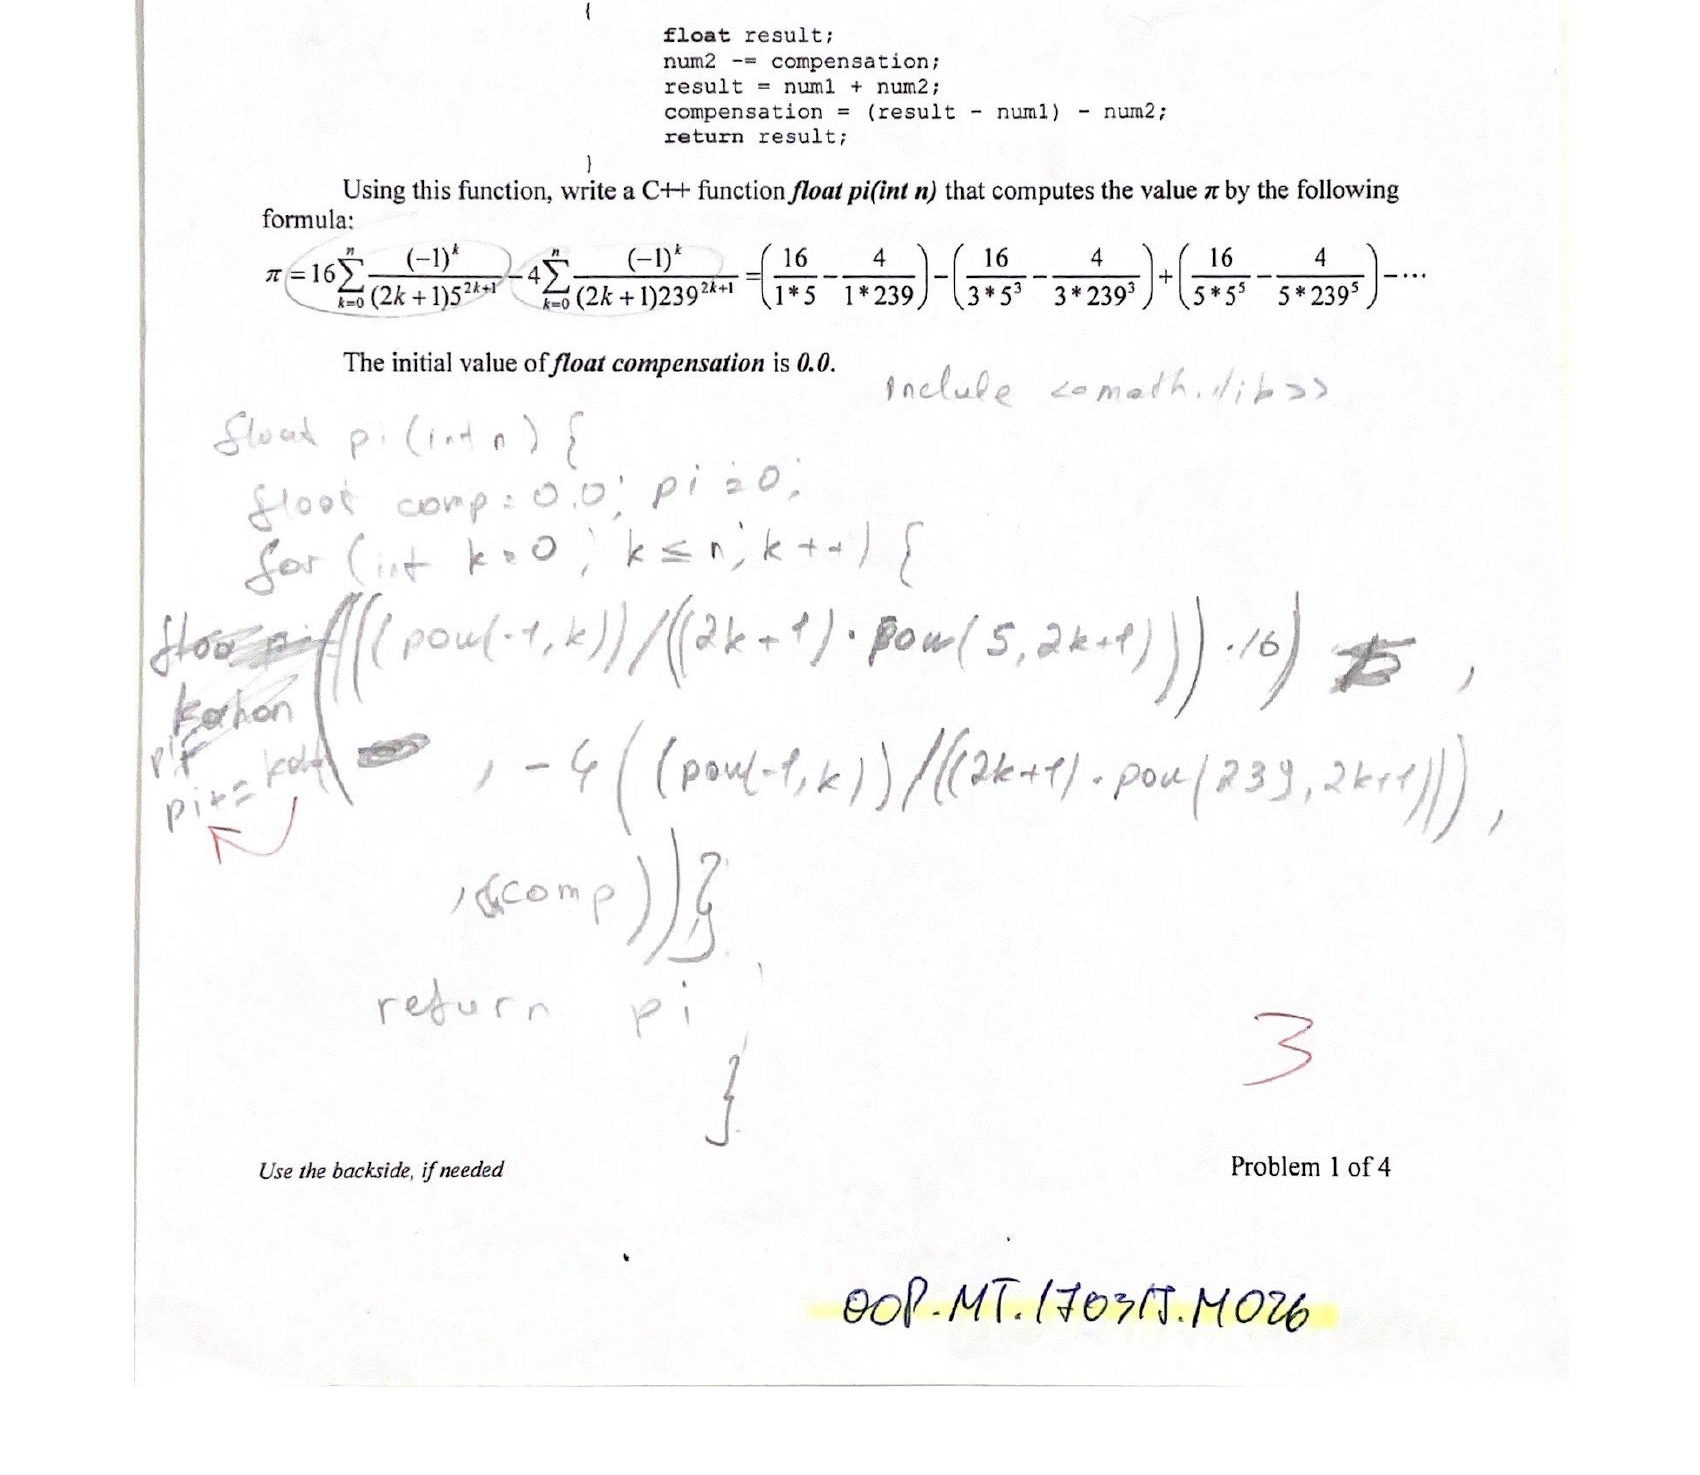 {
float result;
num2 -= compensation;
result = num1 + num2;
compensation = (result - num1) - num2;
return result;
}
Using this function, write a C++ function float pi(int n) that computes the value π by the following
formula:
π = 16 ∑_{k=0}^{n} (-1)^k / ((2k+1)5^{2k+1}) - 4 ∑_{k=0}^{n} (-1)^k / ((2k+1)239^{2k+1}) = (16/(1*5) - 4/(1*239)) - (16/(3*5^3) - 4/(3*239^3)) + (16/(5*5^5) - 4/(5*239^5)) - ...
The initial value of float compensation is 0.0.
include <<math.lib>>
float pi (int n) {
float comp = 0.0; pi = 0;
for (int k = 0; k ≤ n; k++) {
((((pow(-1, k)) / ((2k+1) · pow(5, 2k+1))) · 16) ,
kahan
pi+= , -4 ((pow(-1, k)) / ((2k+1) · pow(239, 2k+1))) ,
, &comp)) }
return pi
}
3
Use the backside, if needed
Problem 1 of 4
OOP.MT.170317.M026